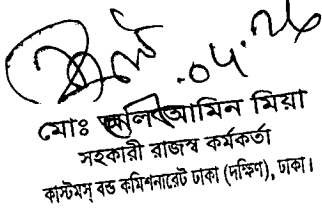 .০৫.২৬
মোঃ আলিআমিন মিয়া
সহকারী রাজস্ব কর্মকর্তা
কাস্টমস্ বন্ড কমিশনারেট ঢাকা (দক্ষিণ), ঢাকা।